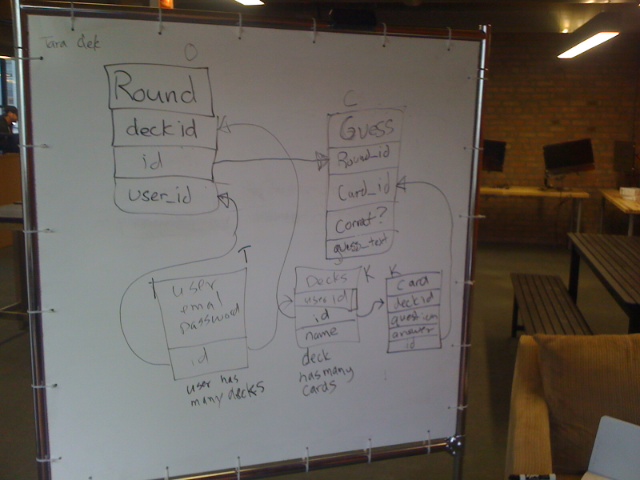 Tara
O
Round
deckid
id
user_id
C
Guess
Round_id
Card_id
Correct?
guess_text
T
T
user
email
password
id
user has
many decks
K
Decks
userid
id
name
deck
has many
cards
K
Card
deckid
question
answer
id